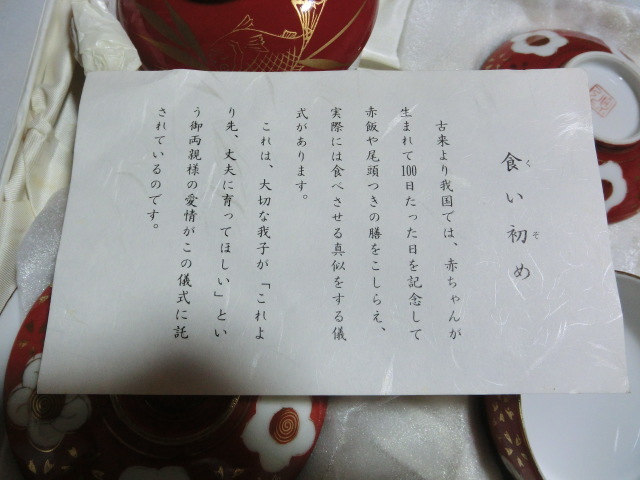 食い初め
くぞ
古来より我国では、赤ちゃんが
生まれて100日たった日を記念して
赤飯や尾頭つきの膳をこしらえ、
実際には食べさせる真似をする儀
式があります。
これは、大切な我子が「これよ
り先、丈夫に育ってほしい」とい
う御両親様の愛情がこの儀式に託
されているのです。